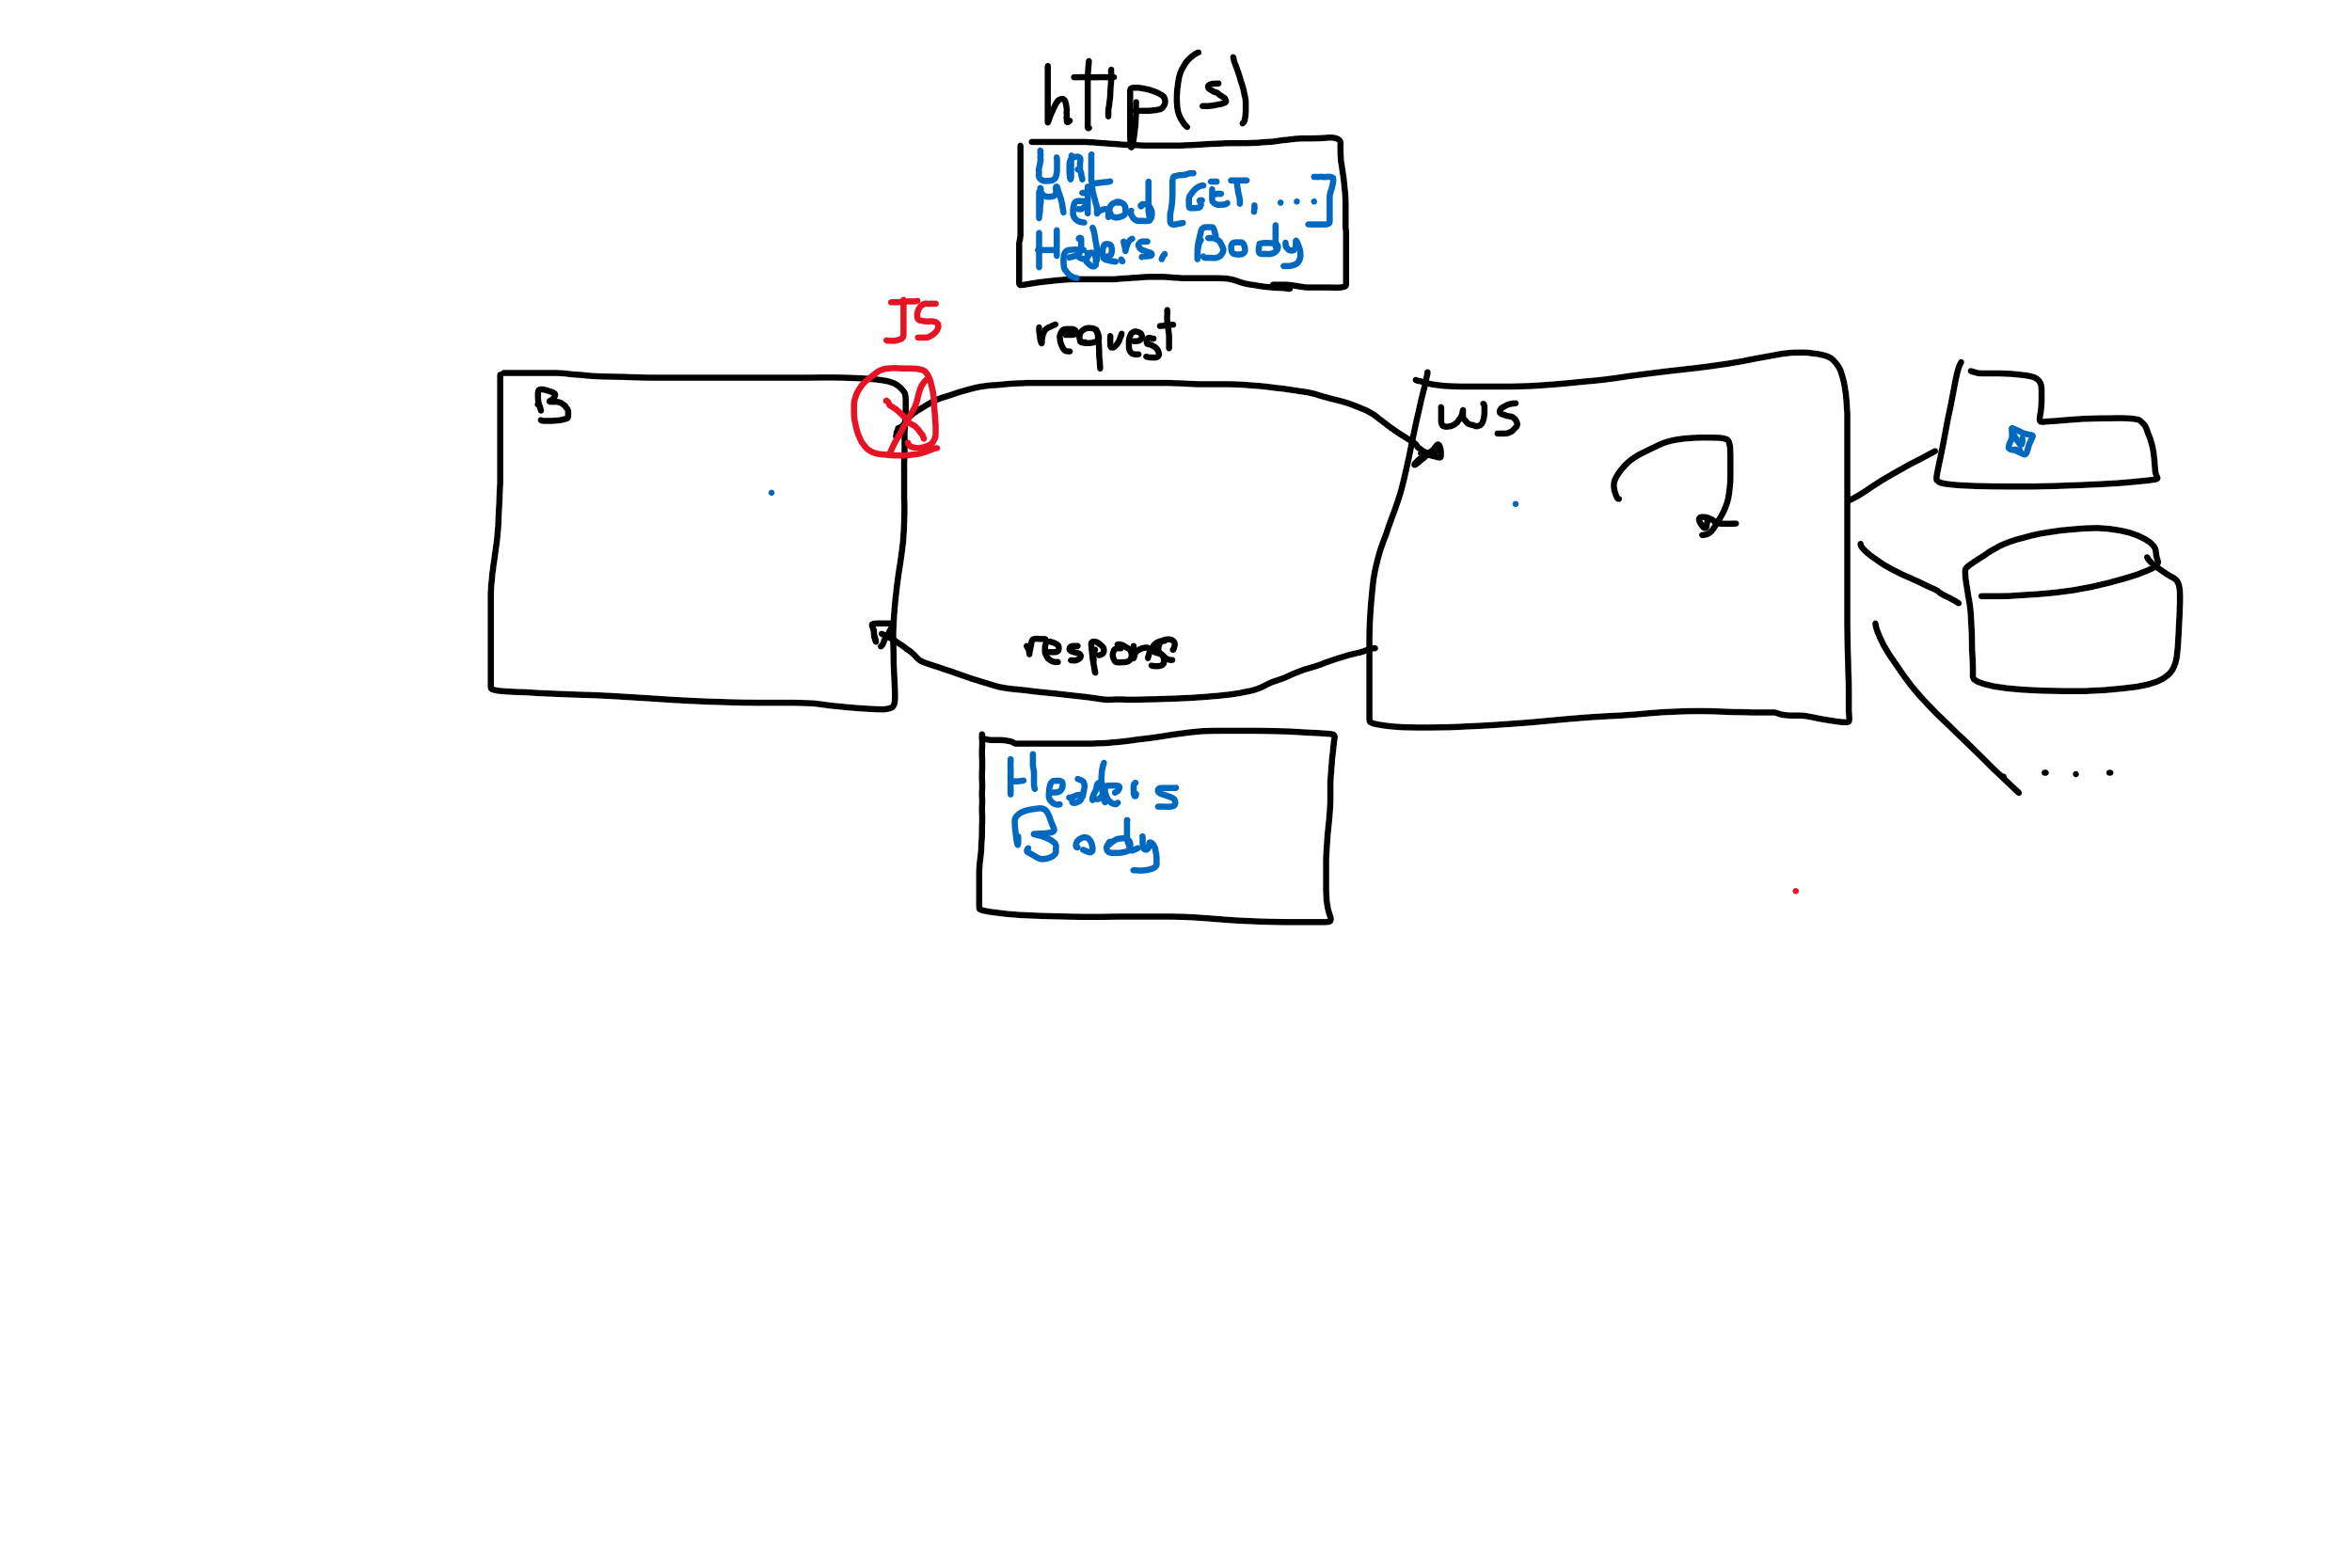 http(s)
URL
Method [GET, ...]
Headers, Body
JS
request
B
WS
respons
Headers
Body
....